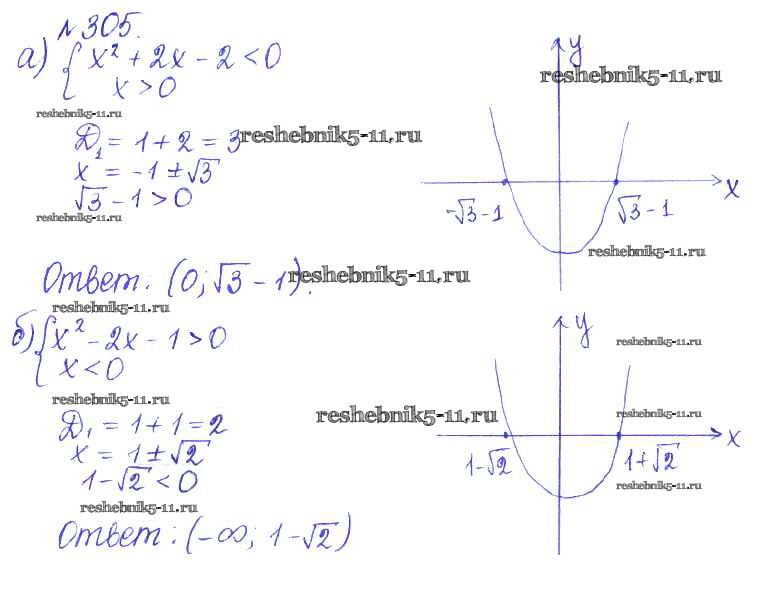 № 305.
а) { x² + 2x - 2 < 0
x > 0
reshebnik5-11.ru
D₁ = 1 + 2 = 3
reshebnik5-11.ru
x = -1 ± √3
√3 - 1 > 0
reshebnik5-11.ru
y
reshebnik5-11.ru
x
-√3 - 1
√3 - 1
reshebnik5-11.ru
Ответ: (0; √3 - 1).
reshebnik5-11.ru
reshebnik5-11.ru
б) { x² - 2x - 1 > 0
x < 0
reshebnik5-11.ru
D₁ = 1 + 1 = 2
x = 1 ± √2
1 - √2 < 0
reshebnik5-11.ru
y
reshebnik5-11.ru
reshebnik5-11.ru
reshebnik5-11.ru
x
1 - √2
1 + √2
reshebnik5-11.ru
Ответ: (-∞; 1 - √2)